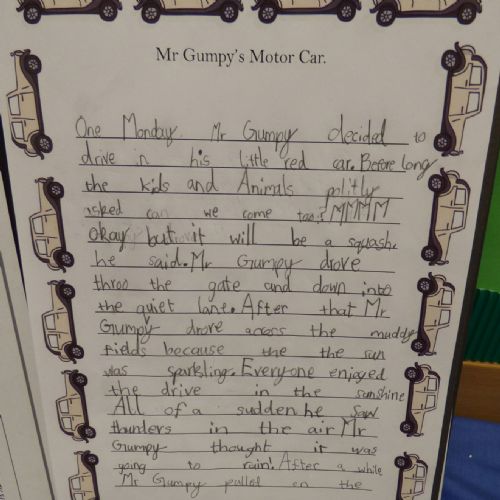 Mr Gumpy's Motor Car.
One Monday. Mr Gumpy decided to
drive in his little red car. Before long
the kids and Animals politly
asked can we come too? MMMM
Okay but it will be a squash.
he said. Mr Gumpy drove
throo the gate and down into
the quiet lane. After that Mr
Gumpy drove across the muddy
fields because the the sun
was sparkling. Everyone enjoyed
the drive in the sunshine
All of a sudden he saw
thunders in the air Mr
Gumpy thought it was
going to rain. After a while
Mr Gumpy pulled on the